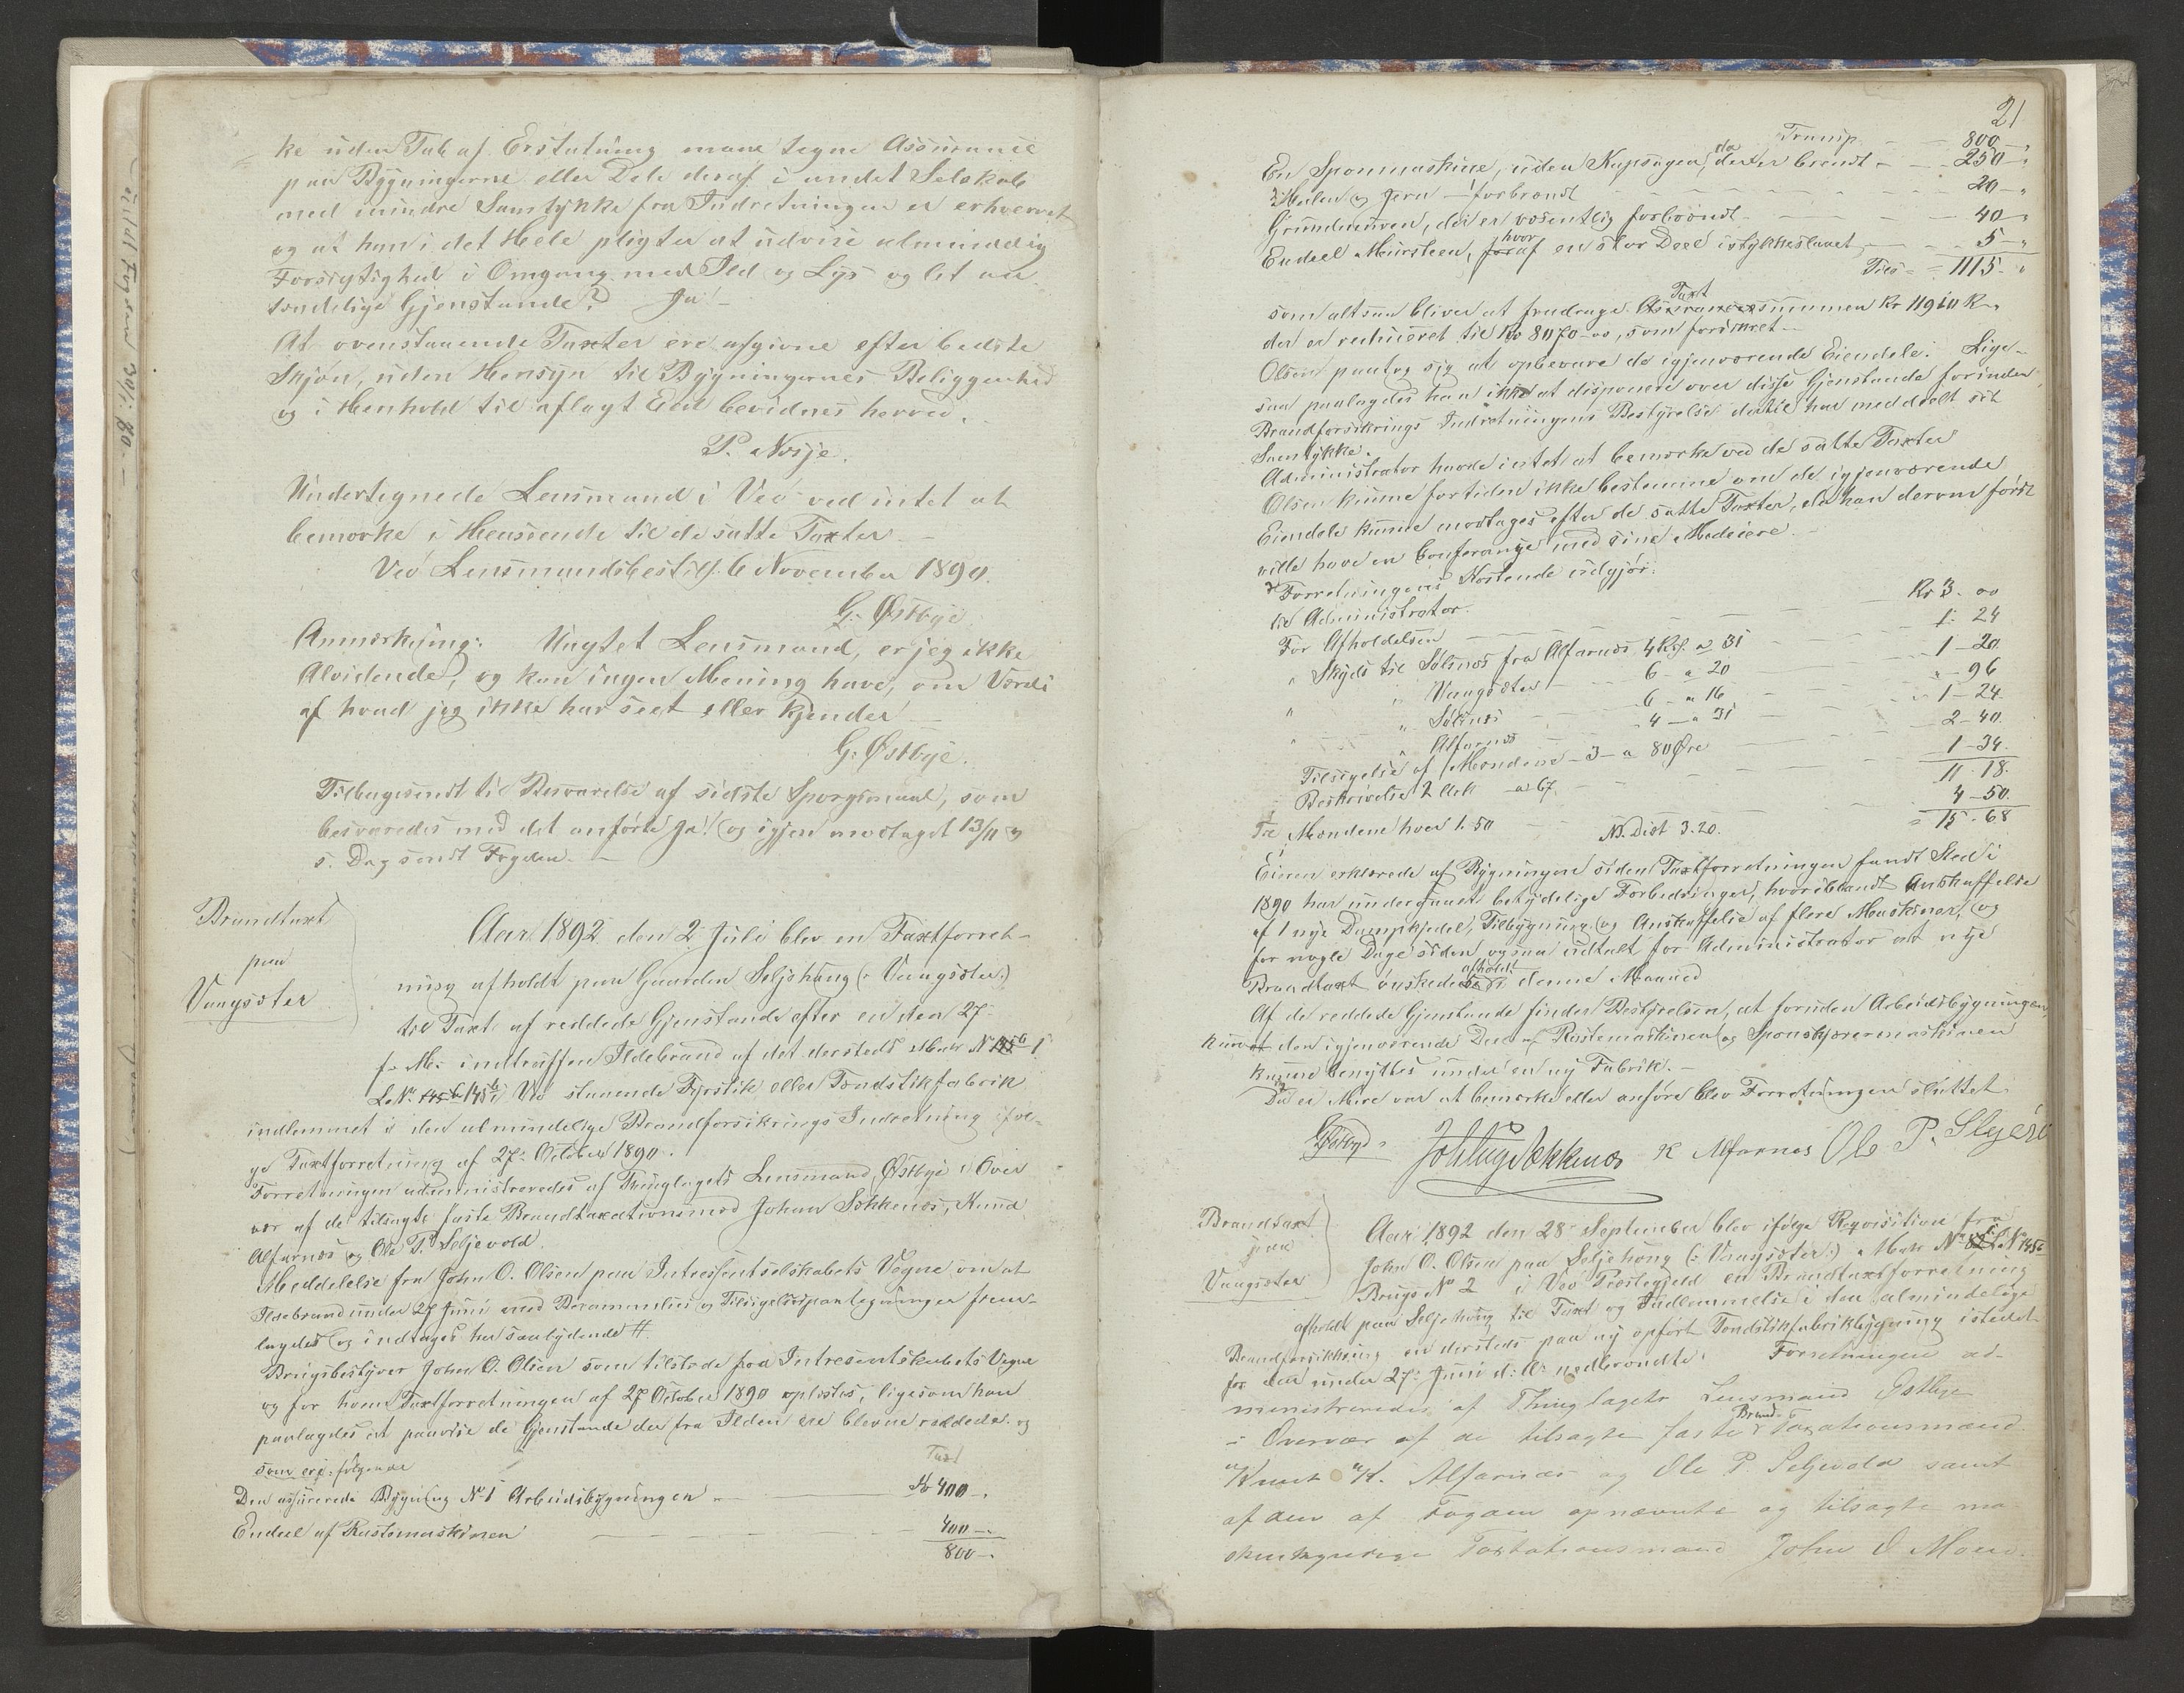 ke uden Tab af Erstatning maae tegne Assurance
paa Bygningerne eller Dele deraf i andet Selskab
med mindre Samtykke fra Indretningen er erhvervet
og at han i det Hele pligter at udvise almindelig
Forsigtighed i Omgang med Ild og Lys og let an-
tændelige Gjenstande? Ja!
At ovenstaaende Taxter ere afgivne efter bedste
Skjøn, uden Hensyn til Bygningernes Beliggenhed
og i Henhold til aflagt Eed bevidnes herved.
P. Nesje.
Undertegnede Lensmand i Veø ved intet at
bemærke i Henseende til de satte Taxter.
Veø Lensmandsbestill. 6 November 1890.
G. Østbye
Anmærkning: Uagtet Lensmand, er jeg ikke
Alvidende, og kan ingen Mening have, om Værdi
af hvad jeg ikke har seet eller kjender
G. Østbye.
Tilbagesendt til Besvarelse af sidste Spørgsmaal, som
besvaredes med det anførte Ja! og igjen modtaget 13/11 og
s. Dag sendt Fogden.
Brandtaxt
paa
Vangsæter
Aar 1892 den 2 Juli blev en Taxtforret-
ning afholdt paa Gaarden Seljehaug (: Vangsæter:)
til Taxt af reddede Gjenstande efter en den 27-
f. M. indtruffen Ildebrand af det dersteds Matr No 1
L. No. 145 Ved staaende Fyrstik eller Tændstikfabrik
indlemmet i den almindelige Brandforsikrings Indretning iføl-
ge Taxtforretning af 27. October 1890.
Forretningen administreredes af Thinglagets Lensmand Østbye i Over
vær af de tilsagte faste Brandtaxationsmænd Johan Sækkenæs, Knud
Alfarnæs og Ole P. Seljevold.
Meddelelse fra John O. Olsen paa Intressentselskabets Vegne om at
Ildebrand under 27 Juni med Berammelse og Tilsigelsespaategninger frem-
lagdes og indtages her saalydende #.
Brugsbestyrer John O. Olsen som tilstede fra Intresentskabets Vegne
og for hvem Taxtforretningen af 27 October 1890 oplæstes, ligesom han
paalagdes at paavise de Gjenstande der fra Ilden ere blevne reddede og
som ere: følgende
Taxt
Den assurerede Bygning No 1 Arbeidsbygningen 400 -
Endeel af Rustemaskinen 400 -
800 -
21
Transp. 800 -
En Sponmaskine, uden Kapsagen, da den er brændt - 250 -
Hulen og Jern - forbrændt 20 -
Grundmuren, der er væsentlig forbrændt 40 -
Endeel Muursteen, hvoraf en stor Deel istykkeslaaet, 5 -
Tils = 1115 -
som altsaa bliver at fradrage Taxtsummen Kr 11910 K.
der er reduceret til Kr 8070-00, som forsikret -
Olsen paatog sig at opbevare de igjenværende Eiendele. Lige-
saa paalagdes han ikke at disponere over disse Gjenstande forinden
Brandforsikrings Indretningens Bestyrelse dertil har meddeelt sit
Samtykke.
Administrator havde intet at bemærke ved de satte Taxter
Olsen kunne for tiden ikke bestemme om de igjenværende
Eiendele kunne modtages efter de satte Taxter, da han derom først
ville have en Conferange med sine Medeiere.
Forretningens Kostende udgjør:
til Administrator.
For Afholdelsen Kr 3. 00
" Skyds til Sølsnæs fra Alfarnæs 4 Kil. a 31 1: 24
" " Vangsæter 6 - a 20 1 - 20
" " Sølsnæs 6 - a 16 " - 96
" " Alfarnæs 4 - a 31 1 - 24
Tilsigelse af Mændene - 3 - a 80 Øre 2 - 40.
Beskrivelse 2 Ark a 67. 1 - 34.
11 - 18.
Tre Mændene hver 1.50 4 - 50.
NB. Diæt 3.20. = 15 - 68
Eieren erklærede af Bygningen siden Taxtforretningen fandt Sted i
1890 har undergaaet betydelige Forbedringer, hvoriblandt Anskaffelse
af 1 nye Dampkjedel, Tilbygning og Anskaffelse af flere Maskiner, og
for nogle Dage siden ogsaa udtalt for Administrator at nye
Brandtaxt ønskedes afholdt i denne Maaned
Af de reddede Gjenstande finder Bestyrelsen, at foruden Arbeidsbygningen,
kun den igjenværende Deel af Rustemaskinen og Sponskjærermaskinen
kunne benyttes under en ny Fabrik. -
Da ei Mere var at bemærke eller anføre blev Forretningen sluttet
GØstbye Joh Sækkenæs K Alfarnes Ole P. Sleje
Brandtaxt
paa
Vangsæter
Aar 1892 den 28 September blev ifølge Reqvisition fra
John O. Olsen paa Seljehaug (: Vangsæter:) Matr No L. No 145
Brugs No 2 i Veø Præstegjeld en Brandtaxtforretning
afholdt paa Seljehaug til Taxt og Indlemmelse i den almindelige
Brandforsikkring en dersteds paa ny opført Tændstikfabrikbygning istedet
for den under 27. Juni d. A. nedbrændte. Forretningen ad-
ministreredes af Thinglagets Lensmand Østbye
i Overvær af de tilsagte faste Brand-Taxationsmænd
Knut K. Alfarnæs og Ole P Seljevold samt
af den af Fogden opnævnte og tilsagte ma
skinkyndige Taxtationsmand John O Moen.